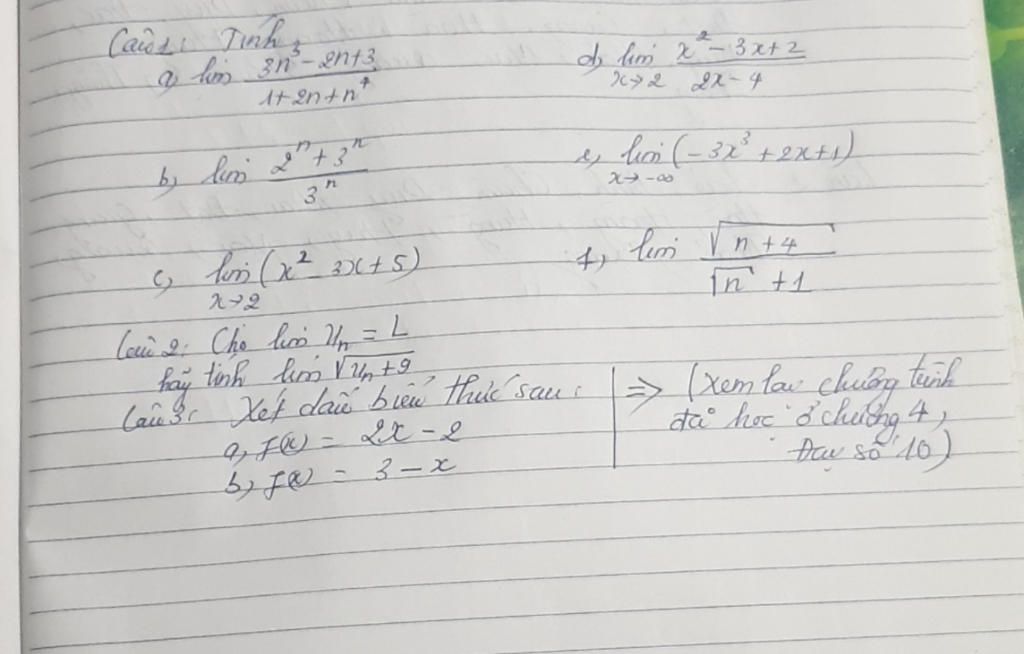 Câu 1: Tính
a, lim (3n³ - 2n + 3)/(1 + 2n + n⁴)
d, lim x→2 (x² - 3x + 2)/(2x - 4)
b, lim (2ⁿ + 3ⁿ)/3ⁿ
e, lim x→-∞ (-3x³ + 2x + 1)
c, lim x→2 (x² - 3x + 5)
f, lim √(n + 4)/(√n + 1)
Câu 2: Cho lim uₙ = L
hãy tính lim √(uₙ + 9)
Câu 3: Xét dấu biểu thức sau:
a, f(x) = 2x - 2
b, f(x) = 3 - x
=> (xem lại chương trình
đã học ở chương 4,
Đại số 10)